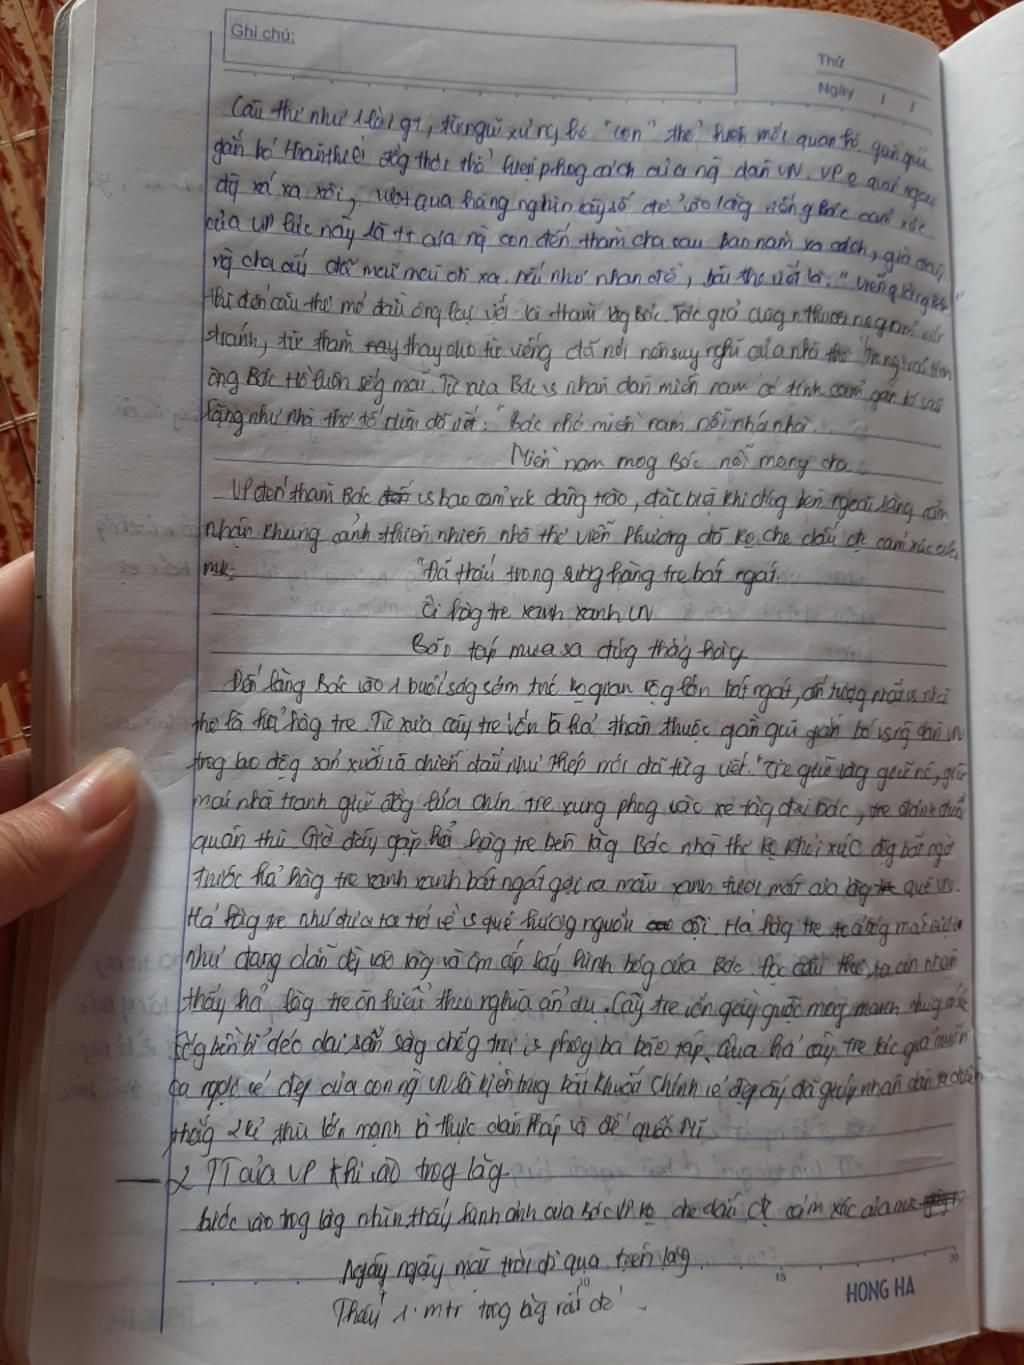 Ghi chú:
Thứ
Ngày / /
Câu thơ như 1 lời gt, từ ngữ xưng hô "con" thể hiện mối quan hệ gần gũi
gắn bó thân thiết đồg thời thể hiện phog cách của ng dân VN. VP ở quê ngoài
xa xôi, vượt qua hàng nghìn cây số để vào lăng viếng Bác cảm xúc
của VP lúc này là tt của ng con đến thăm cha sau bao năm xa cách, giờ đây
ng cha ấy đã mãi mãi đi xa. Nếu như nhan đề, bài thơ viết là: "Viếng lăng Bác"
thì đến câu thơ mở đầu ông lại viết là thăm lăg Bác. Tác giả dùg nt nói
tránh, từ thăm thay cho từ viếng đã nói nên suy nghĩ của nhà thơ trong trái tim
ông Bác Hồ luôn sốg mãi. Từ xưa Bác vs nhân dân miền nam có tình cảm gắn bó sâu
lặng như nhà thơ tố Hữu đã viết: "Bác nhớ miền nam nỗi nhớ nhà
Miền nam mog Bác nỗi mong cha
VP đến thăm Bác vs bao cảm xúc dâng trào, đặc biệt khi đứng bên ngoài lăng cảm
nhận khung cảnh thiên nhiên nhà thơ viễn Phương đã ko che dấu đc cảm xúc của
mk: "Đã thấy trong sươg hàng tre bát ngát
Ôi hàg tre xanh xanh VN
Bão táp mưa sa đứg thẳg hàg
Đến lăng Bác vào 1 buổi ság sớm trc ko gian rộg lớn bát ngát, ấn tượg nhất vs nhà
thơ là hả hàg tre. Từ xưa cây tre vốn là hả thân thuộc gần gũi gắn bó vs ng dân VN
trog lao độg sản xuất và chiến đấu như thép mới đã từg viết. "Tre giữ làg giữ nc, giữ
mái nhà tranh giữ đồg lúa chín. tre xung phog vào xe tăg đại bác, tre đánh đuổi
quân thù Giờ đây gặp hả hàg tre bên lăg Bác nhà thơ ko khỏi xúc độg bất ngờ
trước hả hàg tre xanh xanh bát ngát gợi ra màu xanh tươi mát của quê VN.
Hả hàg tre như đưa ta trở về vs quê hươg nguồn cội. Hả hàg tre
như đang dẫn độg vào lăg và ôm ấp lấy hình bóg của Bác. Đọc câu thơ, ta còn nhận
thấy hả hàg tre ẩn hiểu theo nghĩa ẩn dụ. Cây tre vốn gầy guộc mog manh nhưg có sức
sốg bền bỉ dẻo dai sẵn sàg chốg trọi vs phog ba bão táp. Qua hả cây tre tác giả muốn
ca ngợi vẻ đẹp của con ng VN là kiên trung bất khuất chính vẻ đẹp ấy đã giúp nhân dân ta chiến
thắg 2 kẻ thù lớn mạnh là thực dân Pháp và đế quốc Mĩ
2 TT của VP khi vào trog lăg.
bước vào trog lăg nhìn thấy hình ảnh của Bác VP ko che dấu đc cảm xúc của mk
Ngày ngày mặt trời đi qua trên lăg
Thấy 1 mtr trog lăg rất đỏ
10 15 20
HONG HA